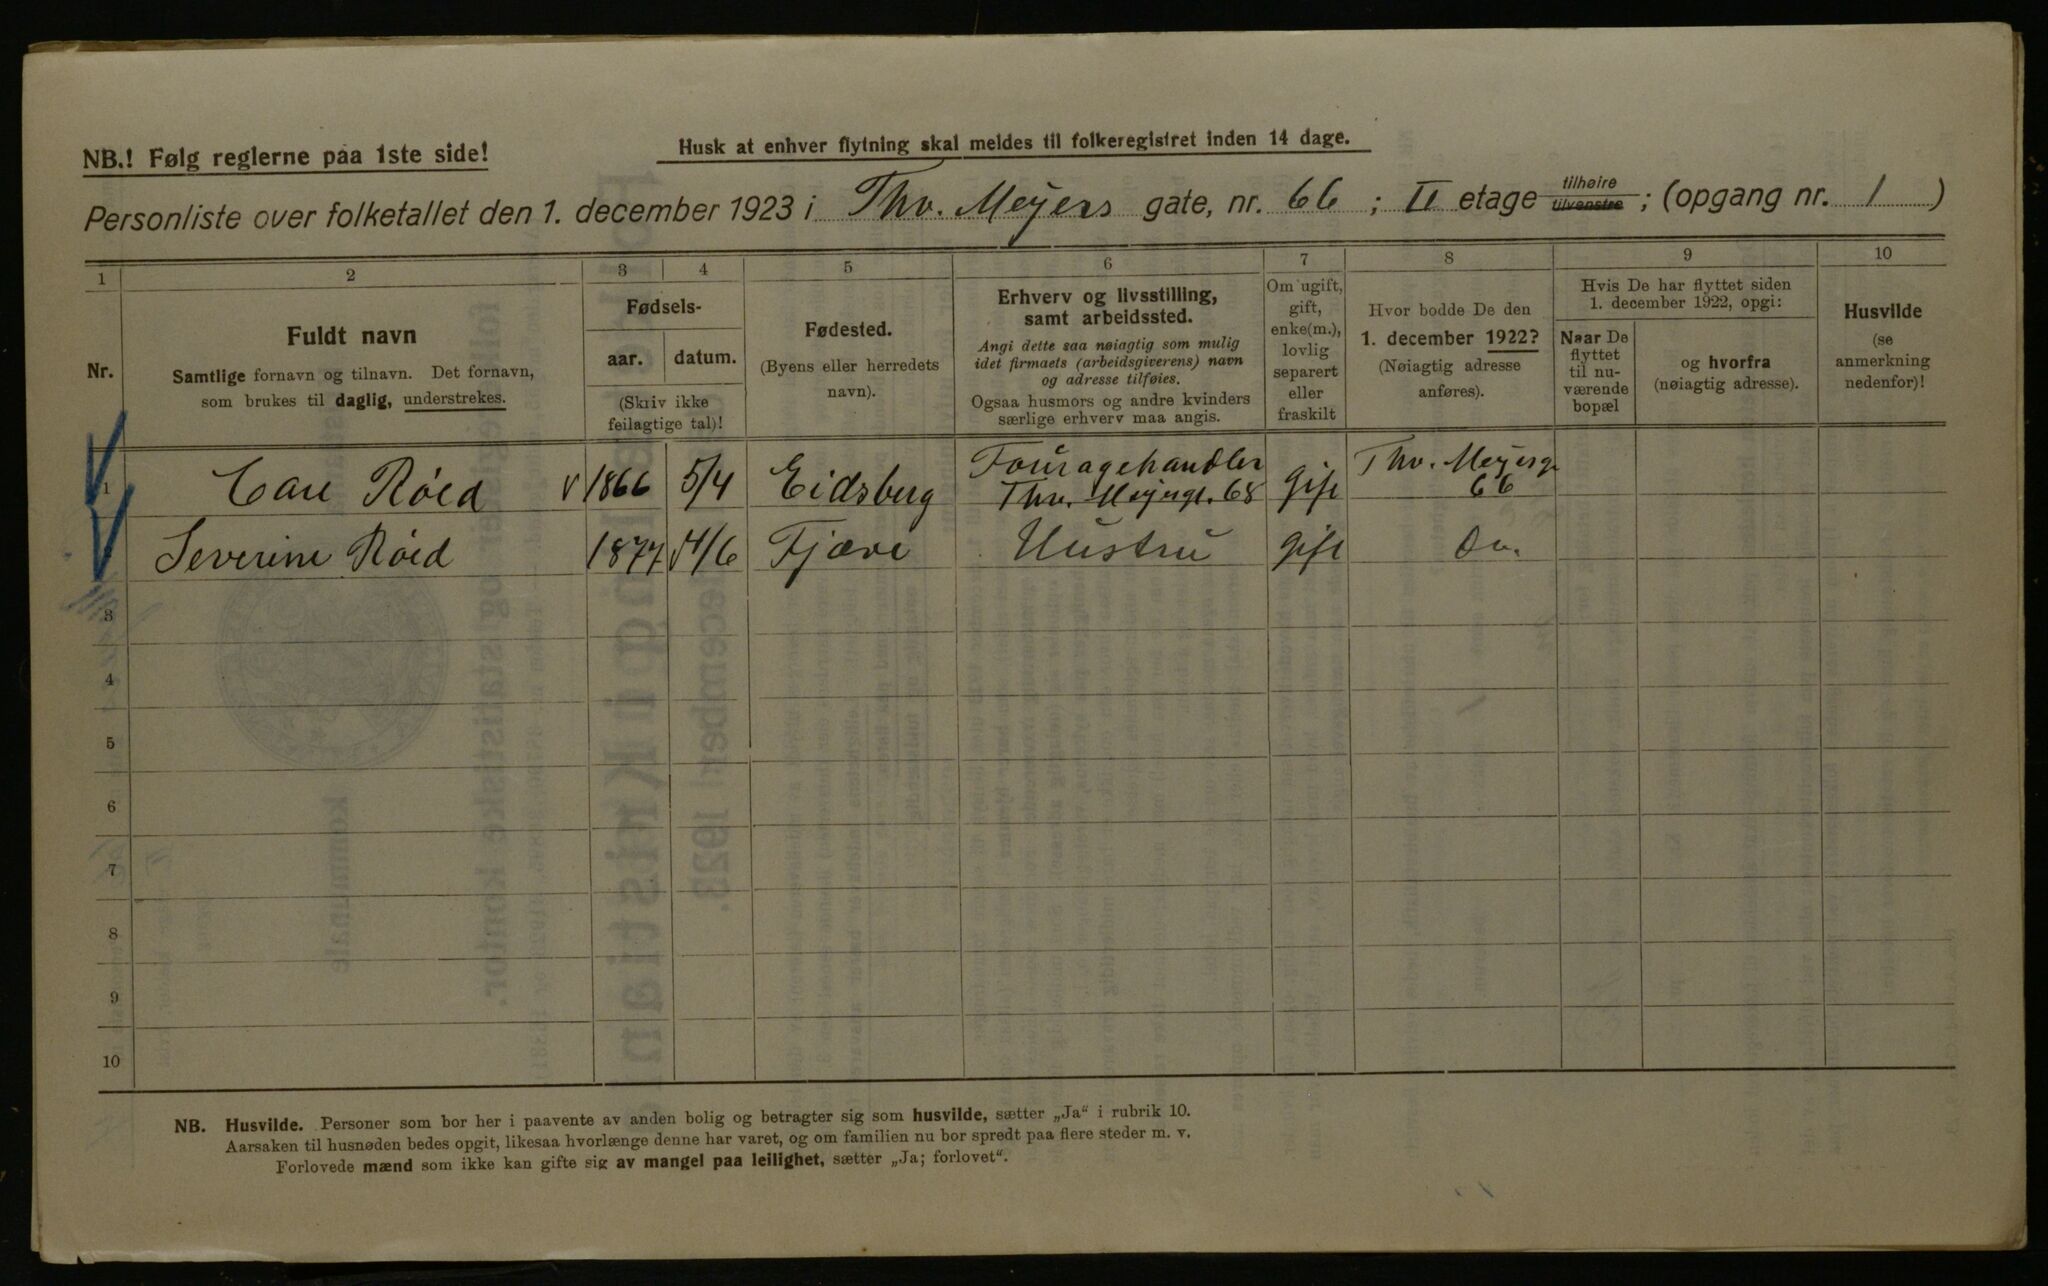 NB.! Følg reglerne paa 1ste side!
Husk at enhver flytning skal meldes til folkeregistret inden 14 dage.
Personliste over folketallet den 1. december 1923 i Thv. Meyers gate, nr. 66 ; II etage tilhøire tilvenstre ; (opgang nr. 1 )
1 2 3 4 5 6 7 8 9 10
Nr.
Fuldt navn
Samtlige fornavn og tilnavn. Det fornavn,
som brukes til daglig, understrekes.
Fødsels-
aar. datum.
(Skriv ikke
feilagtige tal)!
Fødested.
(Byens eller herredets
navn).
Erhverv og livsstilling,
samt arbeidssted.
Angi dette saa nøiagtig som mulig
idet firmaets (arbeidsgiverens) navn
og adresse tilføies.
Ogsaa husmors og andre kvinders
særlige erhverv maa angis.
Om ugift,
gift,
enke(m.),
lovlig
separert
eller
fraskilt
Hvor bodde De den
1. december 1922?
(Nøiagtig adresse
anføres).
Hvis De har flyttet siden
1. december 1922, opgi:
Naar De
flyttet
til nu-
værende
bopæl
og hvorfra
(nøiagtig adresse).
Husvilde
(se
anmerkning
nedenfor)!
1 Carl Røed v 1866 5/4 Eidsberg Fouragehandler Thv. Meyersgt. 68 gift Thv. Meyersg. 66
Severine Røed 1877 Fjære Hustru gift Do.
3
4
5
6
7
8
9
10
NB. Husvilde. Personer som bor her i paavente av anden bolig og betragter sig som husvilde, sætter „Ja“ i rubrik 10.
Aarsaken til husnøden bedes opgit, likesaa hvorlænge denne har varet, og om familien nu bor spredt paa flere steder m. v.
Forlovede mænd som ikke kan gifte sig av mangel paa leilighet, sætter „Ja; forlovet“.